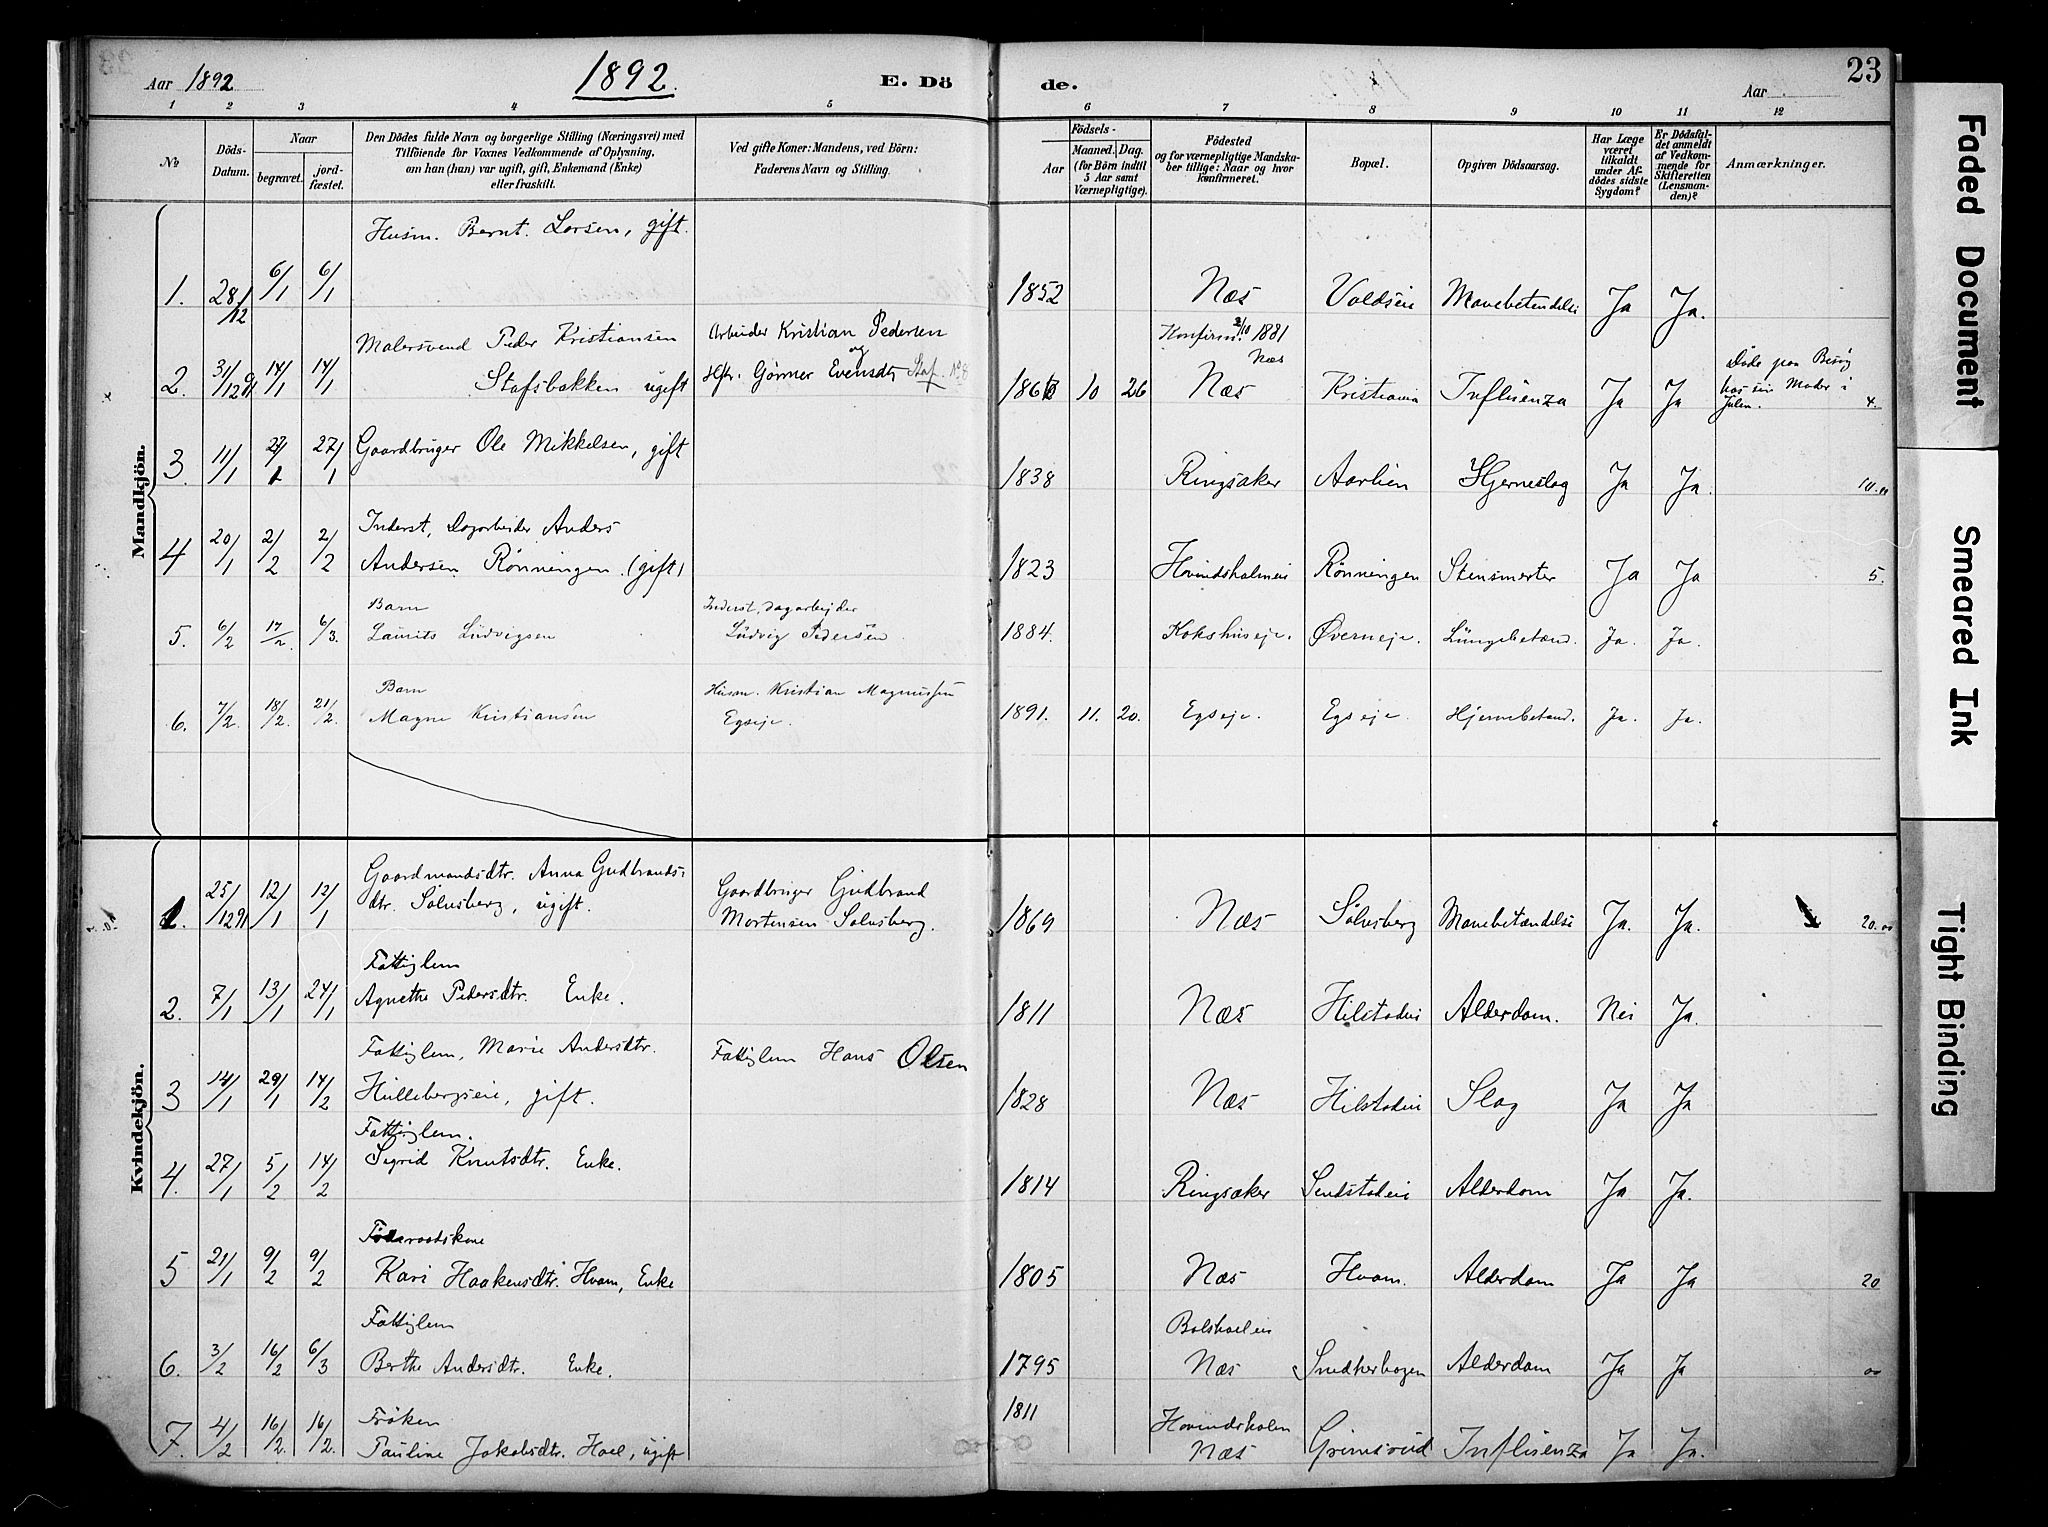 Aar 1892
1892.
E. Dö
de.
Aar
23
1 2 3 4 5 6 7 8 9 10 11 12
No
Döds-Datum.
Naar
begravet.
jord-fæstet.
Den Dödes fulde Navn og borgerlige Stilling (Næringsvei) med
Tilföiende for Voxnes Vedkommende af Oplysning,
om han (hun) var ugift, gift, Enkemand (Enke)
eller fraskilt.
Ved gifte Koner: Mandens, ved Börn:
Faderens Navn og Stilling.
Födsels-
Aar
Maaned. Dag.
(for Börn indtil
5 Aar samt
Værnepligtige).
Födested
og for værnepligtige Mandska-
ber tillige: Naar og hvor
konfirmeret.
Bopæl.
Opgiven Dödsaarsag.
Har Læge
været
tilkaldt
under Af-
dödes sidste
Sygdom?
Er Dödsfal-
det anmeldt
af Vedkom-
mende for
Skifteretten
(Lensman-
den)?
Anmærkninger.
Mandkjön.
Husm. Bernt. Larsen, gift.
1. 28/12 6/1 6/1 1852 Næs Valdseie Mavebetendelse Ja Ja.
Malersvend Peder Kristiansen Arbeider Kristian Pedersen og Konfirm. 2/10 1881 Næs
2. 31/12 91 14/1 14/1 Stafsbakken ugift Hstr. Gørmer Evensdtr 10 26 Næs Kristiania Influenza Ja Ja Døde paa Besøg hos sin Moder i Julen. 4.
3. 11/1 27/1 27/1 Gaardbruger Ole Mikkelsen, gift 1838 Ringsaker Aarlien Hjerneslag Ja Ja. 10.00
Inderst, Dagarbeider Anders
4 20/1 2/2 2/2 Andersen Rönningen (gift) 1823 Hovindsholmeie Rønningen Stensmerter Ja Ja 5.
Barn Inderst, dagarbejder
5. 6/2 17/2. 6/3. Laurits Ludvigsen Ludvig Pedersen 1884. Kokshuseje. Øverneje. Lungebetænd. Ja. Ja.
Barn Husm. Kristian Magnussen
6. 7/2. 18/2. 21/2. Magne Kristiansen Egseje. 1891. 11. 20. Egseje. Egseje. Hjernebetænd. Ja. Ja.
Kvindekjön.
Gaardmandsdtr. Anna Gudbrands- Gaardbruger Gudbrand
1. 25/12 91 12/1 12/1 dtr. Sølvsberg, ugift. Mortensen Sølvsberg. 1869 Næs Sølvsberg Mavebetændelse Ja. Ja. 20.00
Fattiglem
2. 7/1 13/1 24/1 Agnethe Pedersdtr. Enke. 1811 Næs Hilstadeie Alderdom. Nei Ja.
Fattiglem, Marie Andersdtr. Fattiglem Hans Olsen
3 14/1 29/1 14/2 Hullebergseie, gift. 1828 Næs Hilstadeie Slag Ja Ja
Fattiglem.
4. 27/1 5/2 14/2 Sigrid Knutsdtr. Enke. 1814 Ringsaker Sundstadeie Alderdom Ja Ja.
Føderaadskone
5 21/1 9/2 9/2 Kari Haakensdtr. Hvam, Enke 1805 Næs Hvam. Alderdom Ja Ja 20
Fattiglem Balshoeleie
6. 3/2 16/2 6/3 Berthe Andersdtr. Enke. 1795 Næs Snedkerhagen Alderdom Ja Ja 00
Frøken 1811 Hovindsholm
7. 4/2 16/2. 16/2. Pauline Jakobsdtr. Hoel, ugift Næs Grimsrud Influenza Ja Ja.
Faded Document
Smeared Ink
Tight Binding